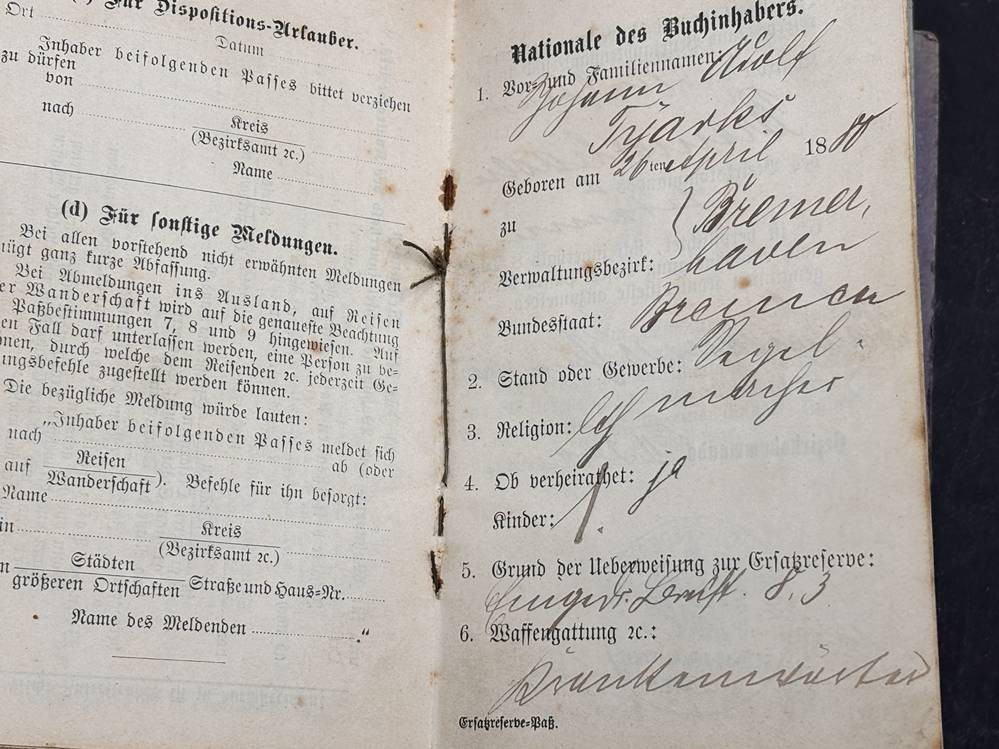 Für Dispositions-Urlauber.
Ort
Datum
Inhaber beifolgenden Passes bittet verziehen
zu dürfen
von
nach
Kreis
(Bezirksamt ꝛc.)
Name
(d) Für sonstige Meldungen.
Bei allen vorstehend nicht erwähnten Meldungen
nügt ganz kurze Abfassung.
Bei Abmeldungen ins Ausland, auf Reisen
er Wanderschaft wird auf die genaueste Beachtung
Paßbestimmungen 7, 8 und 9 hingewiesen. Auf
en Fall darf unterlassen werden, eine Person zu be-
nen, durch welche dem Reisenden ꝛc. jederzeit Ge-
ungsbefehle zugestellt werden können.
Die bezügliche Meldung würde lauten:
„Inhaber beifolgenden Passes meldet sich
nach ab (oder
auf Reisen
Wanderschaft). Befehle für ihn besorgt:
Name
in Kreis
(Bezirksamt ꝛc.)
n Städten
größeren Ortschaften Straße und Haus-Nr.
Name des Meldenden ."
Nationale des Buchinhabers.
1. Vor- und Familiennamen: Adolf
Johann
Tjarks
Geboren am 26ten April 1880
zu Bremer,
Verwaltungsbezirk: haven
Bundesstaat: Bremen
2. Stand oder Gewerbe: Segel-
macher
3. Religion:
4. Ob verheirathet: ja
Kinder:
5. Grund der Ueberweisung zur Ersatzreserve:
8.3
6. Waffengattung ꝛc.:
Krankenwärter
Ersatzreserve-Paß.